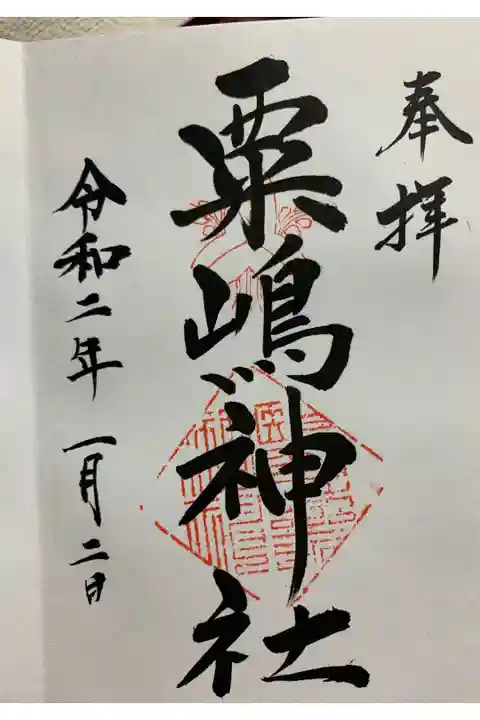 奉拝
粟嶋神社
令和二年 一月二日